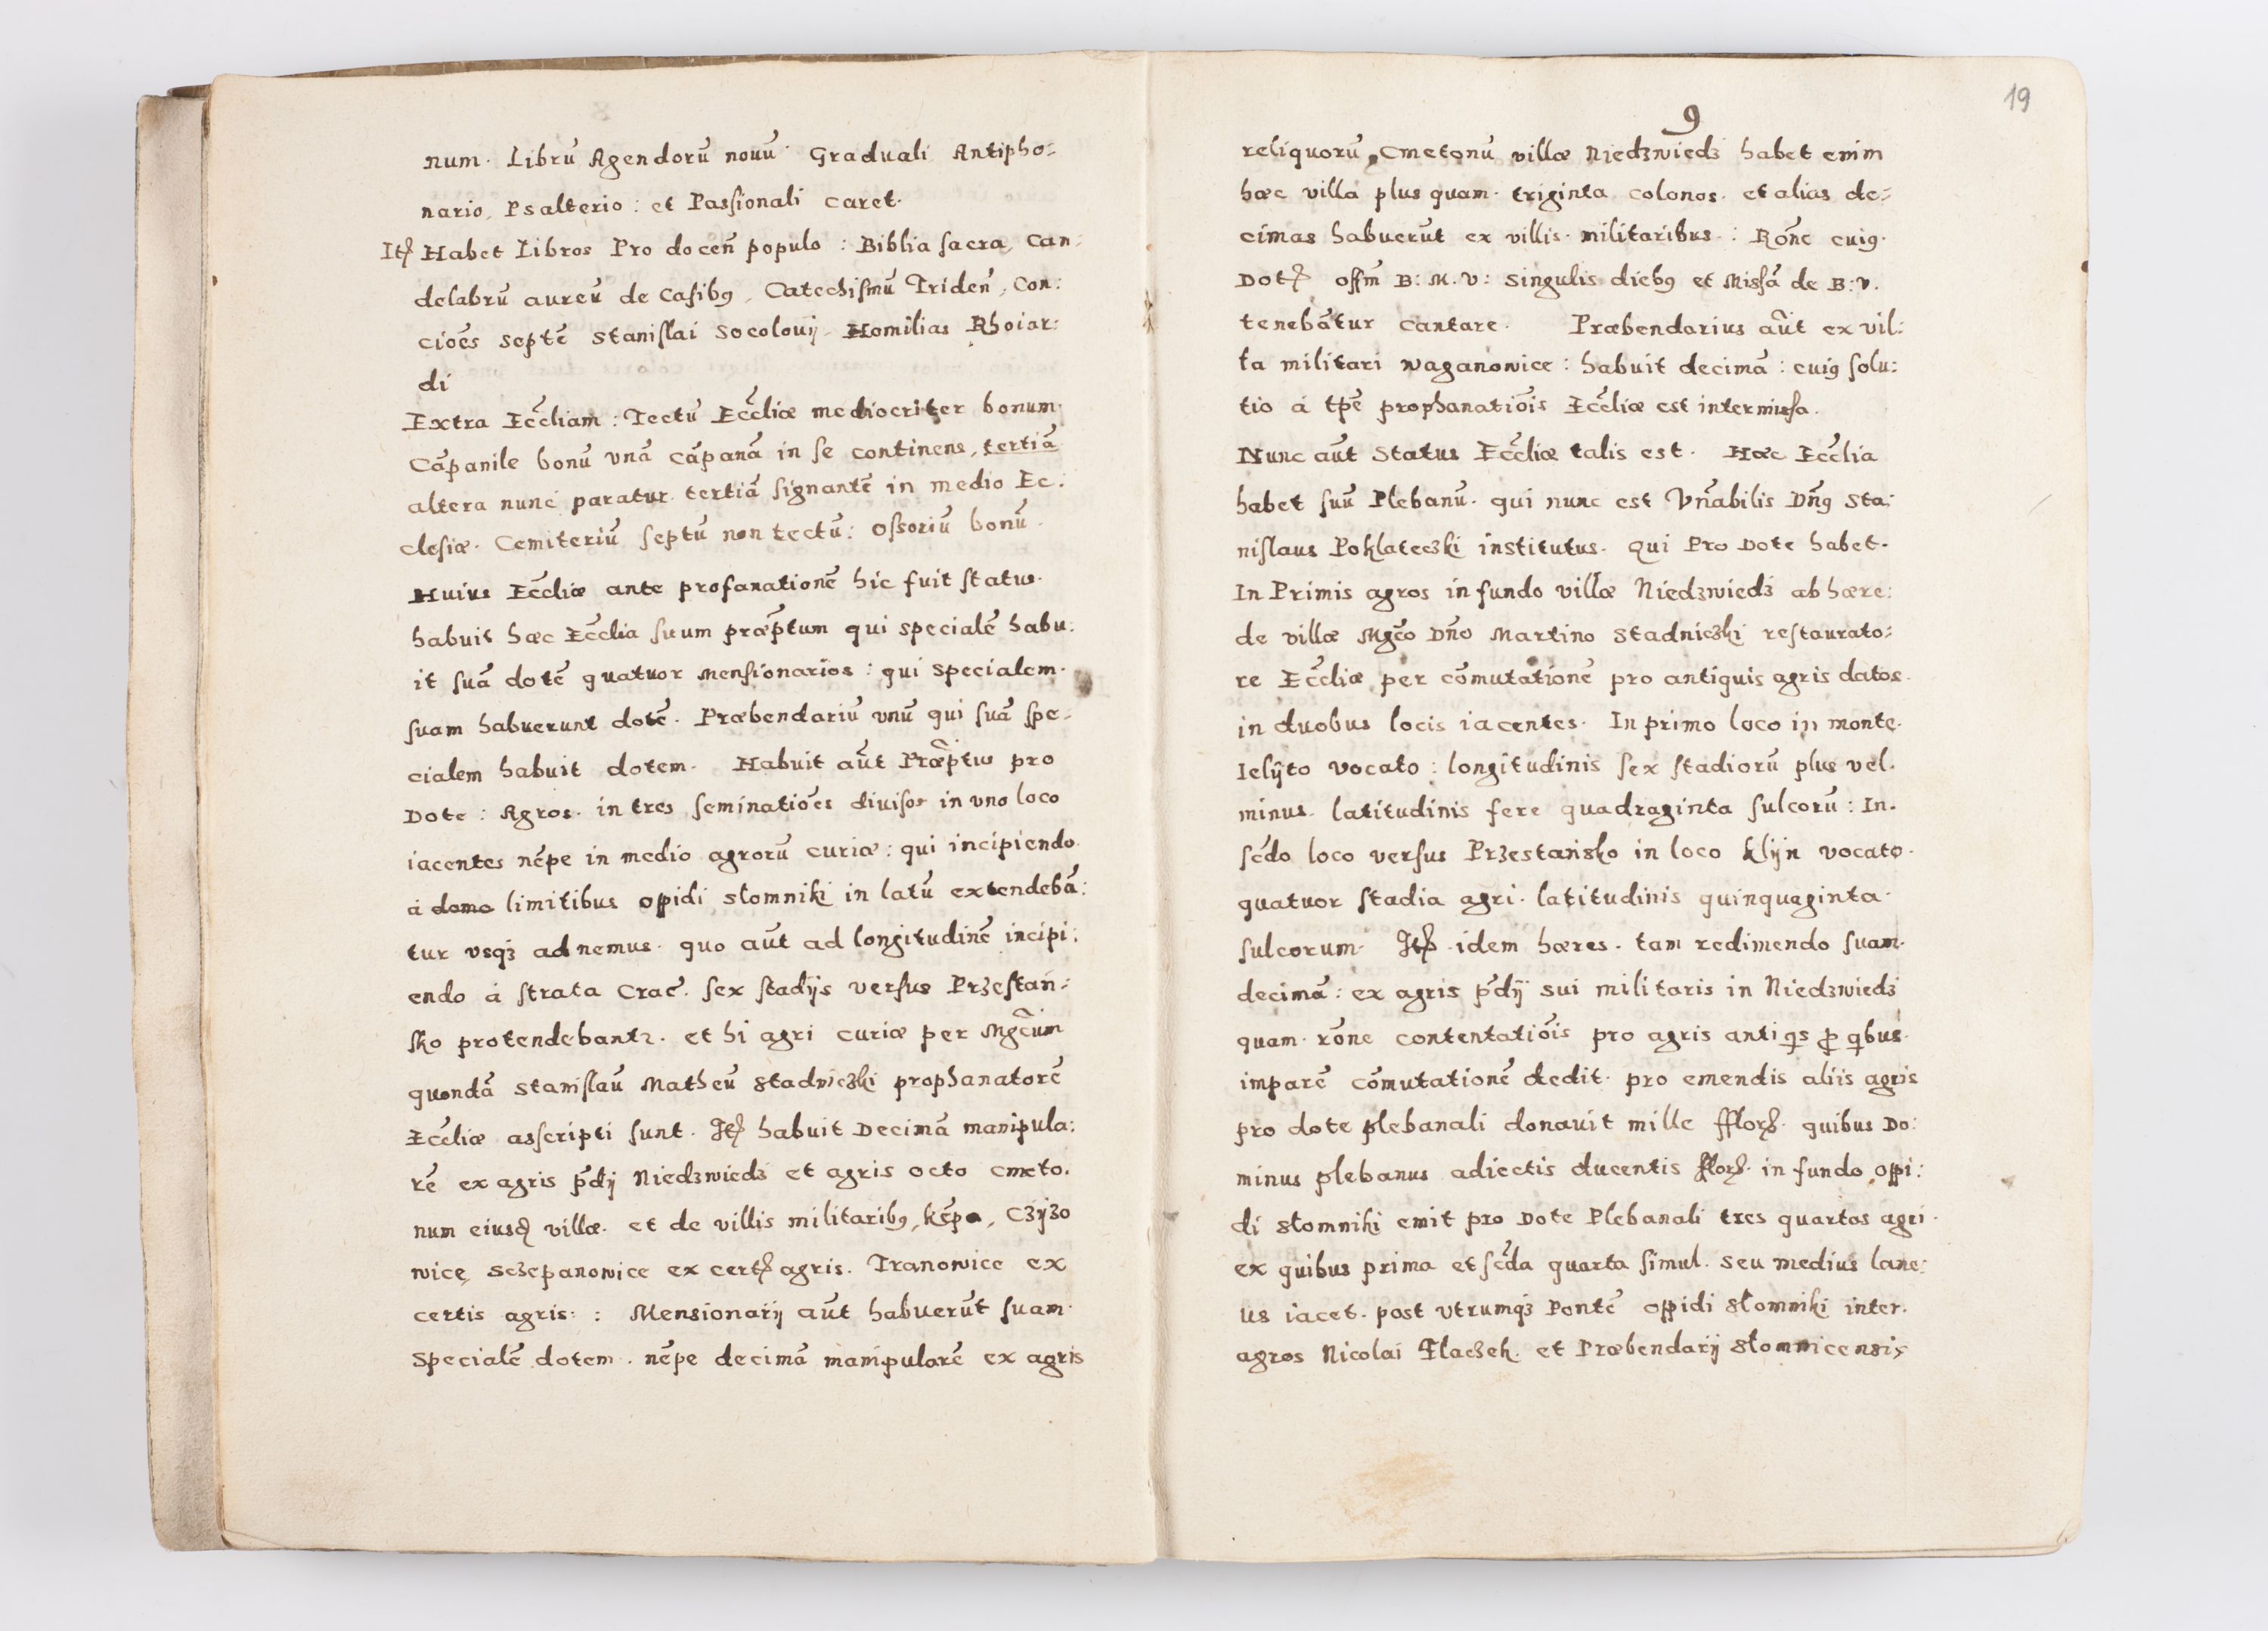 num. Librū Agendorū nouū. Graduali Antipho:
nario, Psalterio: et Passionali caret.
Itē Habet Libros Pro docen̄ populo: Biblia sacra, Can:
delabrū aureū de Casib9, Catechismū Triden̄, Con:
ciōēs septē Stanislai Socolouij. Homilias Rhoiar:
di
Extra Eccl̄iam: Tectū Eccl̄iæ mediocriter bonum.
Cāpanile bonū vnā cāpanā in se continens, tertiā
altera nunc paratur. tertiā signantē in medio Ec:
clesiæ. Cemiteriū septū non tectū: Ossoriū bonū.
Huius Eccl̄iæ ante profanationē hic fuit status.
habuit hæc Eccl̄ia suum præp̄tum qui specialē habu:
it suā dotē quatuor mensionarios: qui specialem.
suam habuerunt dotē. Præbendariū vnū qui suā spe:
cialem habuit dotem. Habuit aūt Præp̄tus pro
Dote: Agros. in tres seminatiōes diuisos in vno loco
iacentes nēpe in medio agrorū curiæ: qui incipiendo.
á domo limitibus oppidi słomniki in latū extendebā:
tur vsq3 ad nemus. quo aūt ad longitudinē incipi:
endo á strata Crac̄. sex stadijs versus Przestań:
sko protendebant2. et hi agri curiæ per Mgc̄um
quondā Stanislaū Matheū Stadnicski prophanatorē
Eccl̄iæ asscripti sunt. Itē habuit Decimā manipula:
rē ex agris p̄dij Niedzwiedz et agris octo cmeto.
num eiusdē villæ. et de villis militarib9, kēpa, Czyzo
wice, Sczepanowice ex certis agris. Iranowice ex
certis agris: : Mensionarij aūt habuerūt suam.
Specialē dotem. nēpe decimā manipularē ex agris
9
19
reliquorū, Cmetonū villæ Niedzwiedz habet enim
hæc villa plus quam. triginta colonos. et alias de:
cimas habuerūt ex villis. militaribus.: Rōne cui9.
Dotis offm̄ B: M. V: singulis dieb9 et Missā de B: V.
tenebātur cantare. Præbendarius aūt ex vil:
la militari Waganowice: habuit decimā: cui9 solu:
tio á tpē prophanatiōis Eccl̄iæ est intermissa.
Nunc aūt Status Eccl̄iæ talis est. Hæc Eccl̄ia
habet suū Plebanū. qui nunc est Vn̄abilis Dn̄9 Sta:
nislaus Poklateczki institutus. Qui Pro Dote habet.
In Primis agros in fundo villæ Niedzwiedz ab hære:
de villæ Mgc̄o Dn̄o Martino Stadnicski restaurato:
re Eccl̄iæ per cōmutationē pro antiquis agris datos.
in duobus locis iacentes. In primo loco in monte.
Ielijto vocato: longitudinis sex stadiorū plus vel.
minus. latitudinis fere quadraginta sulcorū: In.
sc̄do loco versus Przestańsko in loco klijn vocato.
quatuor stadia agri. latitudinis quinquaginta.
sulcorum. Itē idem hæres. tam redimendo suam.
decimā: ex agris p̄dij sui militaris in Niedzwiedz
quam. rōne contentatiōis pro agris antiqis ꝓ qibus.
imparē cōmutationē dedit. pro emendis aliis agris
pro dote plebanali donauit mille fflor. quibus Do:
minus plebanus adiectis ducentis fflor. in fundo oppi:
di słomniki emit pro Dote Plebanali tres quartas agri.
ex quibus prima et sc̄da quarta simul. seu medius lane:
us iacet. post vtrumq3 Pontē oppidi słomniki inter.
agros Nicolai Flaczek. et Præbendarij słomnicensis